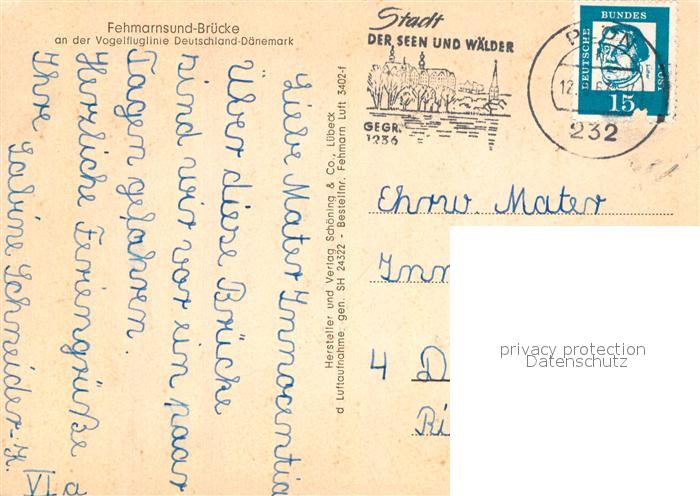 Fehmarnsund-Brücke
an der Vogelfluglinie Deutschland-Dänemark
Liebe Mater Innocentia
Über diese Brücke
sind wir vor ein paar
Tagen gefahren.
Herzliche Feriengrüße
Ihre Sabine Schneider
VI a
Hersteller und Verlag Schöning & Co., Lübeck
d Luftaufnahme: gen. SH 24322 - Bestellnr. Fehmarn Luft 3402-f
Stadt
DER SEEN UND WÄLDER
GEGR.
1236
232
DEUTSCHE
BUNDES
POST
15
Ehrw. Mater
Inn
4 D
Ri
privacy protection
Datenschutz